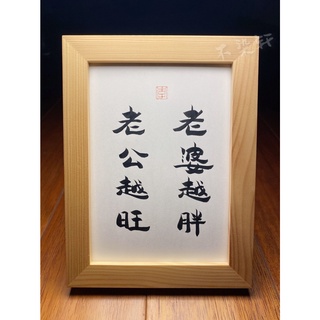 老婆越胖
老公越旺